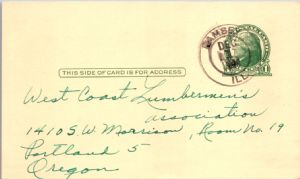 THIS SIDE OF CARD IS FOR ADDRESS
West Coast Lumbermen's
association
1410 S.W. Morrison, Room No. 19
Portland 5
Oregon
ILL